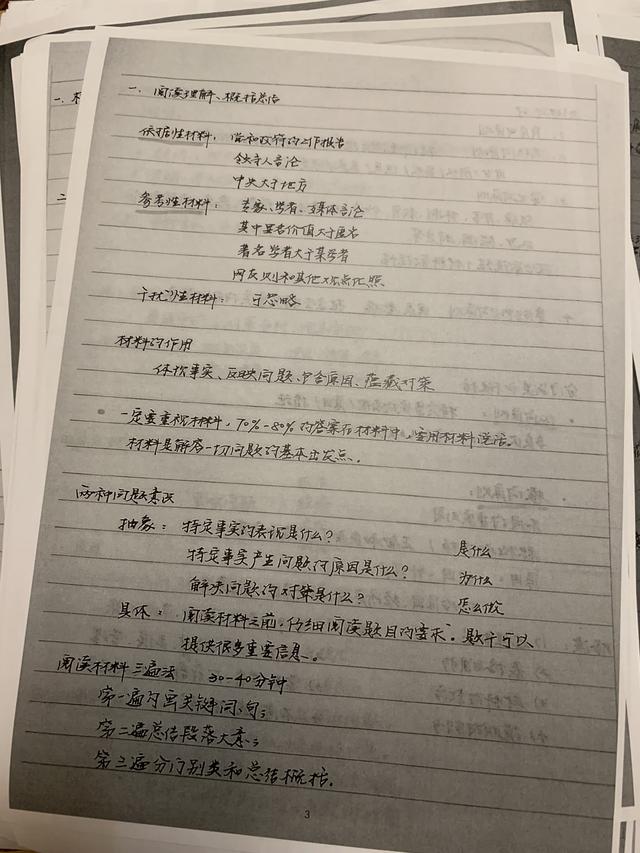 一、阅读理解、概括总结
依据性材料：党和政府的工作报告
领导人言论
中央大于地方
参考性材料：专家、学者、媒体言论
其中署名价值大于匿名
著名学者大于某学者
网友则和其他观点比照
干扰性材料：可忽略
材料的作用
体现事实、反映问题、包含原因、蕴藏对策
一定要重视材料，70%-80%的答案在材料中，要用材料说话。
材料是解答一切问题的基本出发点。
两种问题意识
抽象：特定事实的表现是什么？ 是什么
特定事实产生问题的原因是什么？ 为什么
解决问题的对策是什么？ 怎么做
具体：阅读材料之前，仔细阅读题目的要求。题干可以
提供很多重要信息。
阅读材料三遍法 30-40分钟
第一遍勾画关键词、句；
第二遍总结段落大意；
第三遍分门别类和总结概括.
3